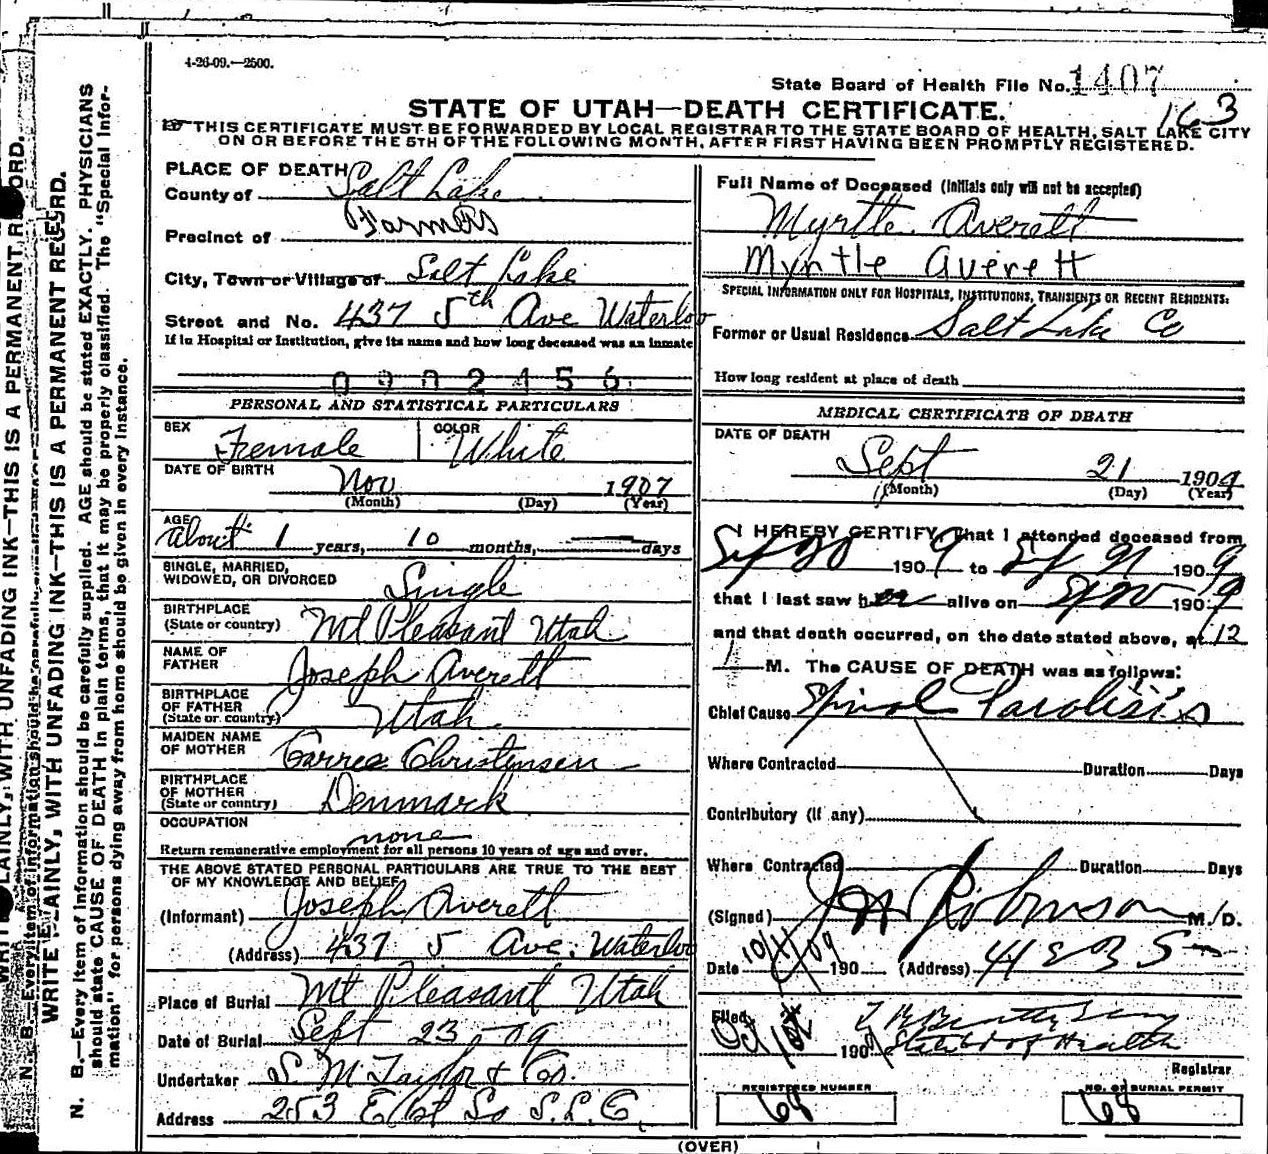 4-26-09.—2500.
State Board of Health File No. 1407
163
STATE OF UTAH—DEATH CERTIFICATE.
THIS CERTIFICATE MUST BE FORWARDED BY LOCAL REGISTRAR TO THE STATE BOARD OF HEALTH, SALT LAKE CITY
ON OR BEFORE THE 5TH OF THE FOLLOWING MONTH, AFTER FIRST HAVING BEEN PROMPTLY REGISTERED.
PLACE OF DEATH
County of Salt Lake
Precinct of Farmers
City, Town or Village of Salt Lake
Street and No. 437 5th Ave Waterloo
If in Hospital or Institution, give its name and how long deceased was an inmate
0902456
PERSONAL AND STATISTICAL PARTICULARS
SEX Female COLOR White
DATE OF BIRTH Nov 1907
(Month) (Day) (Year)
AGE About 1 years, 10 months, days
SINGLE, MARRIED,
WIDOWED, OR DIVORCED Single
BIRTHPLACE
(State or country) Mt Pleasant Utah
NAME OF
FATHER Joseph Averett
BIRTHPLACE
OF FATHER
(State or country) Utah
MAIDEN NAME
OF MOTHER Christensen
BIRTHPLACE
OF MOTHER
(State or country) Denmark
OCCUPATION
none
Return remunerative employment for all persons 10 years of age and over.
THE ABOVE STATED PERSONAL PARTICULARS ARE TRUE TO THE BEST
OF MY KNOWLEDGE AND BELIEF
(Informant) Joseph Averett
(Address) 437 5 Ave. Waterloo
Place of Burial Mt Pleasant Utah
Date of Burial Sept 23 - 09
Undertaker S. M Taylor & Co.
Address 253 E 1st So S.L.C.
Full Name of Deceased (Initials only will not be accepted)
Myrtle Averett
Myrtle Averett
SPECIAL INFORMATION ONLY FOR HOSPITALS, INSTITUTIONS, TRANSIENTS OR RECENT RESIDENTS:
Former or Usual Residence Salt Lake Co
How long resident at place of death
MEDICAL CERTIFICATE OF DEATH
DATE OF DEATH
Sept 21 1909
(Month) (Day) (Year)
I HEREBY CERTIFY, That I attended deceased from
Sep 20 1909 to Sep 21 1909
that I last saw her alive on Sep 20 1909
and that death occurred, on the date stated above, at 12
M. The CAUSE OF DEATH was as follows:
Chief Cause Spinal Paralisis
Where Contracted Duration Days
Contributory (if any)
Where Contracted Duration Days
(Signed) J H Robinson M. D.
Date 10/1/09 190 (Address) 41 E 3 S
Filed
Oct 190 State Bd of Health
Registrar
REGISTERED NUMBER
68
NO. OF BURIAL PERMIT
68
(OVER)
WRITE PLAINLY, WITH UNFADING INK—THIS IS A PERMANENT RECORD.
N. B.—Every item of information should be carefully supplied. AGE should be stated EXACTLY. PHYSICIANS
should state CAUSE OF DEATH in plain terms, that it may be properly classified. The "Special Infor-
mation" for persons dying away from home should be given in every instance.